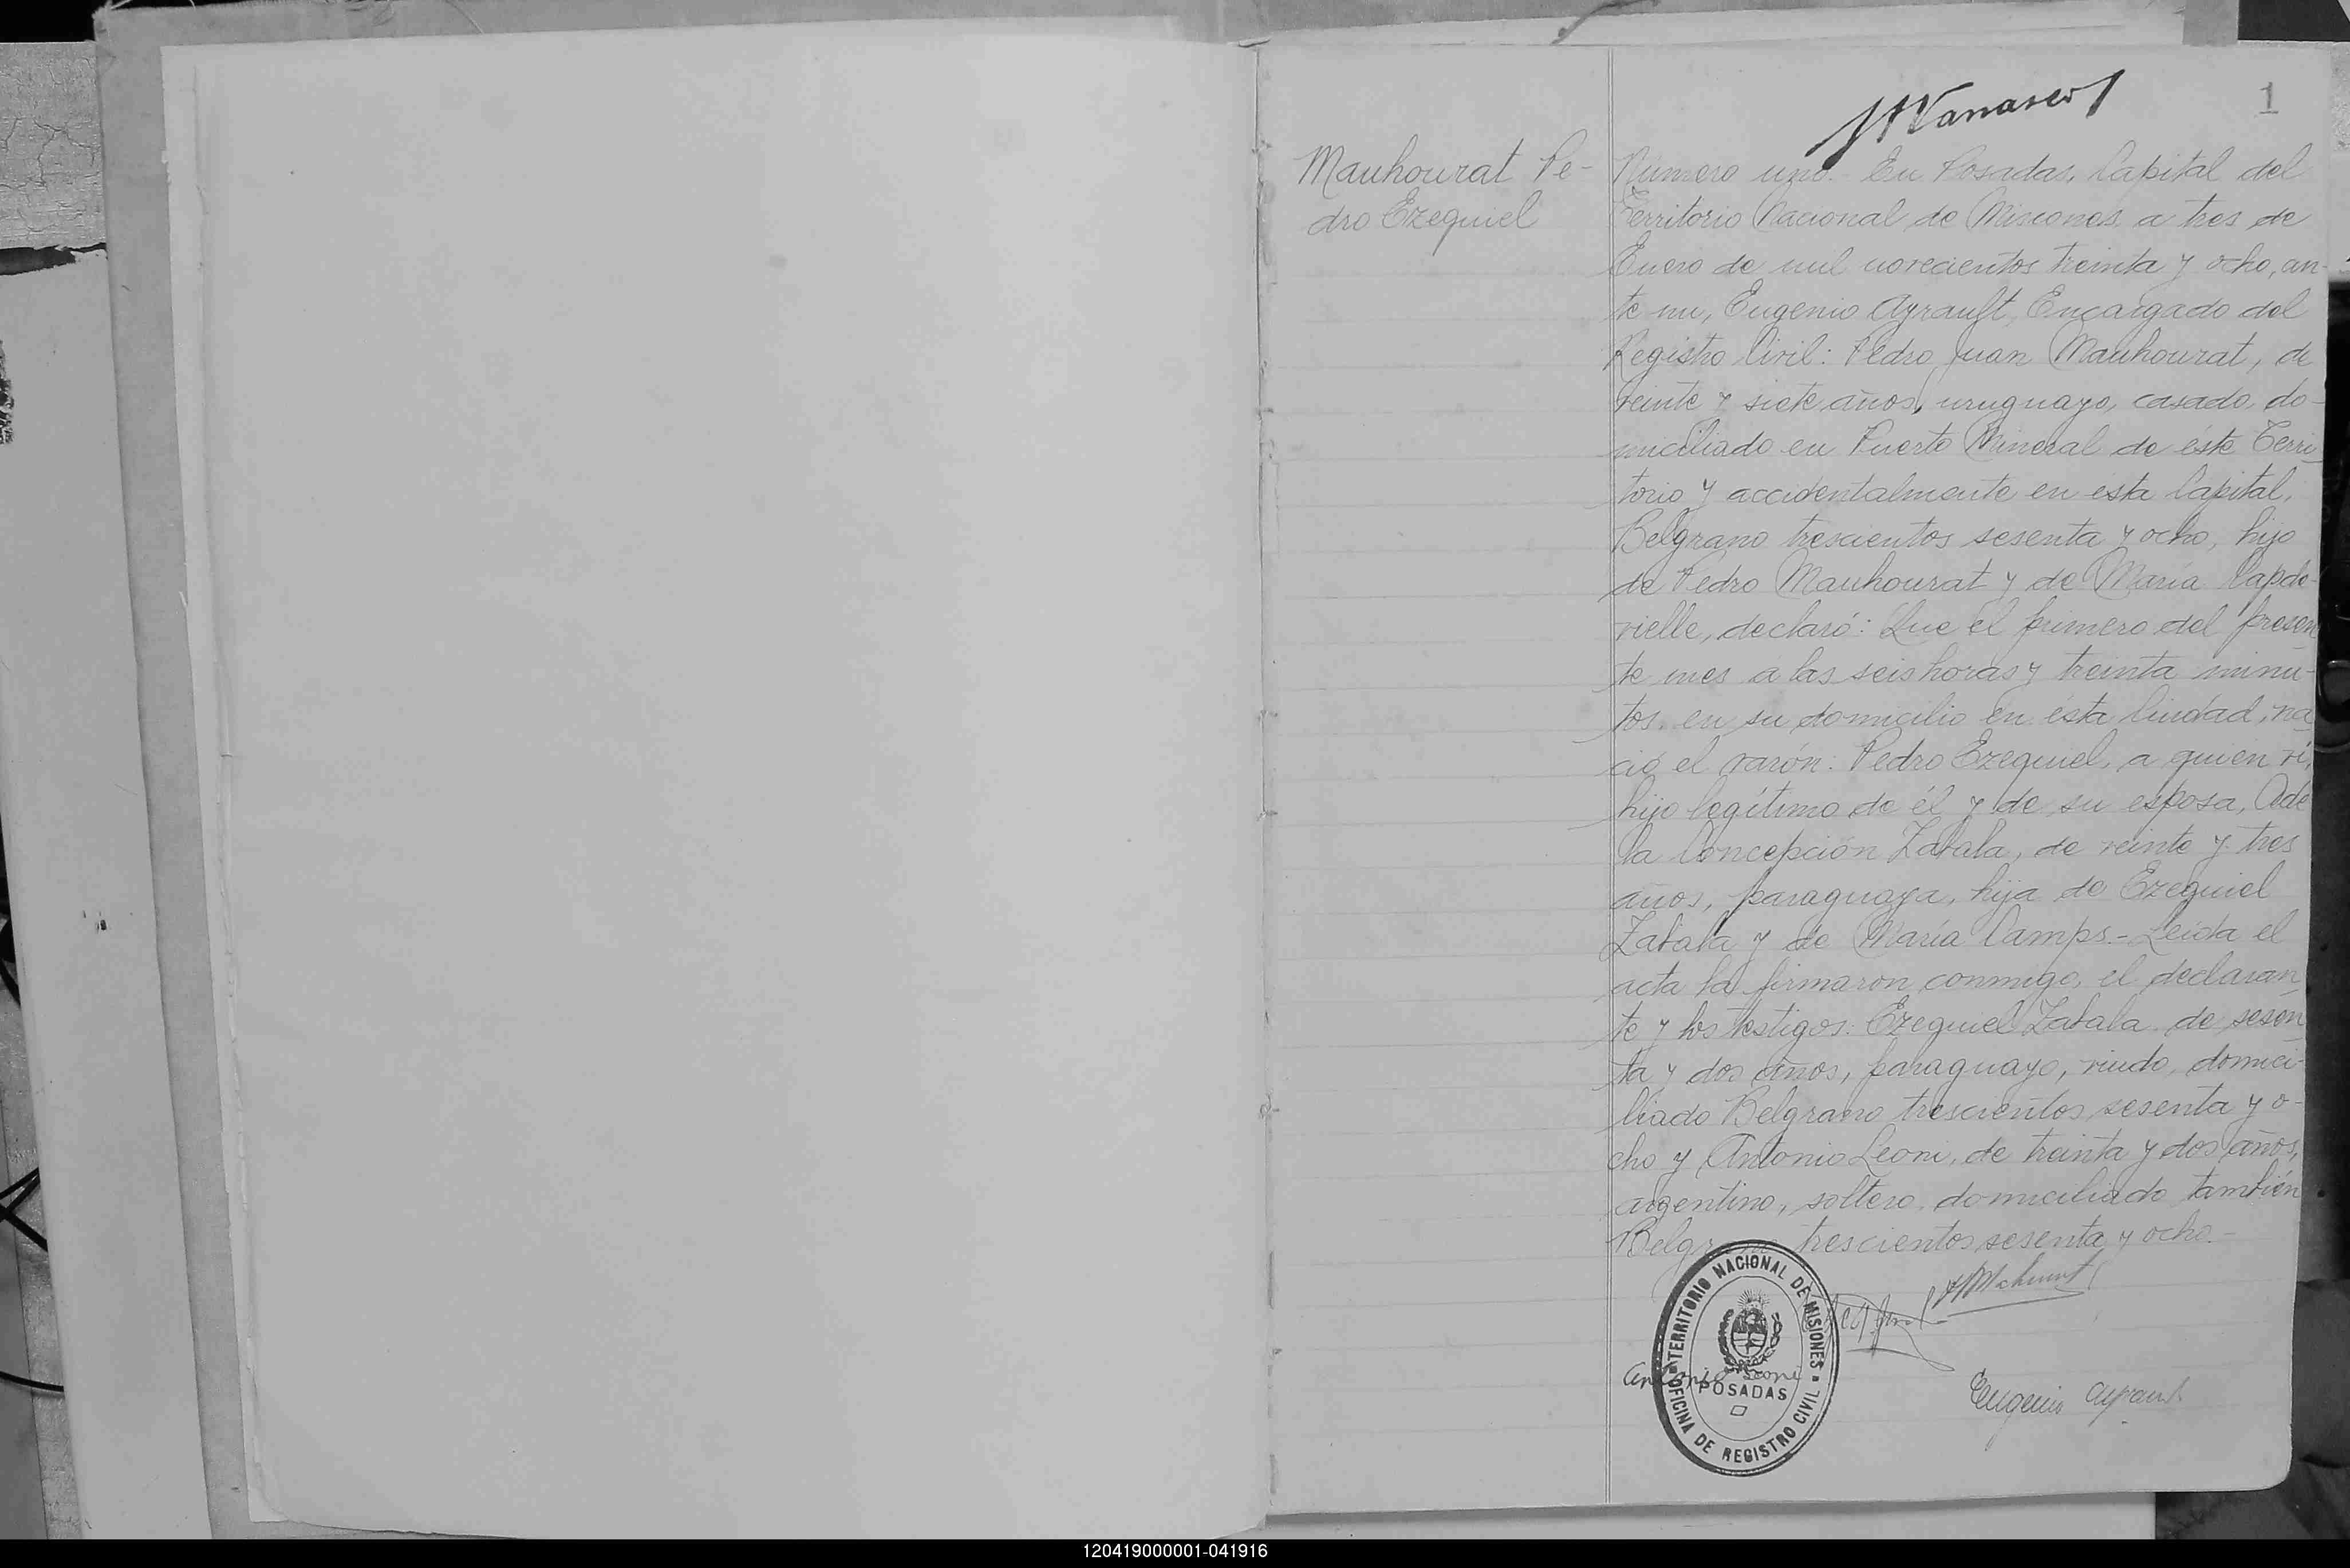 1
Mauhourat Pe-
dro Ezequiel
Número uno. En Posadas, Capital del
Territorio Nacional de Misiones, a tres de
Enero de mil novecientos treinta y ocho, an-
te mi, Eugenio Ayrault, Encargado del
Registro Civil: Pedro Juan Mauhourat, de
veinte y siete años, uruguayo, casado, do-
miciliado en Puerto Mineral de éste Terri-
torio y accidentalmente en esta Capital,
Belgrano trescientos sesenta y ocho, hijo
de Pedro Mauhourat y de María Capde-
vielle, declaró: Que el primero del presen-
te mes a las seis horas y treinta minu-
tos, en su domicilio en ésta Ciudad, na-
ció el varón: Pedro Ezequiel, a quien ví,
hijo legítimo de él y de su esposa, Ade-
la Concepción Zabala, de veinte y tres
años, paraguaya, hija de Ezequiel
Zabala y de María Camps.- Leída el
acta la firmaron conmigo, el declaran-
te y los testigos: Ezequiel Zabala, de sesen-
ta y dos años, paraguayo, viudo, domici-
liado Belgrano trescientos sesenta y o-
cho y Antonio Leoni, de treinta y dos años,
argentino, soltero, domiciliado también
Belgrano trescientos sesenta y ocho.-
TERRITORIO NACIONAL DE MISIONES
POSADAS
OFICINA DE REGISTRO CIVIL
Antonio Leoni
Eugenio Ayrault
120419000001-041916